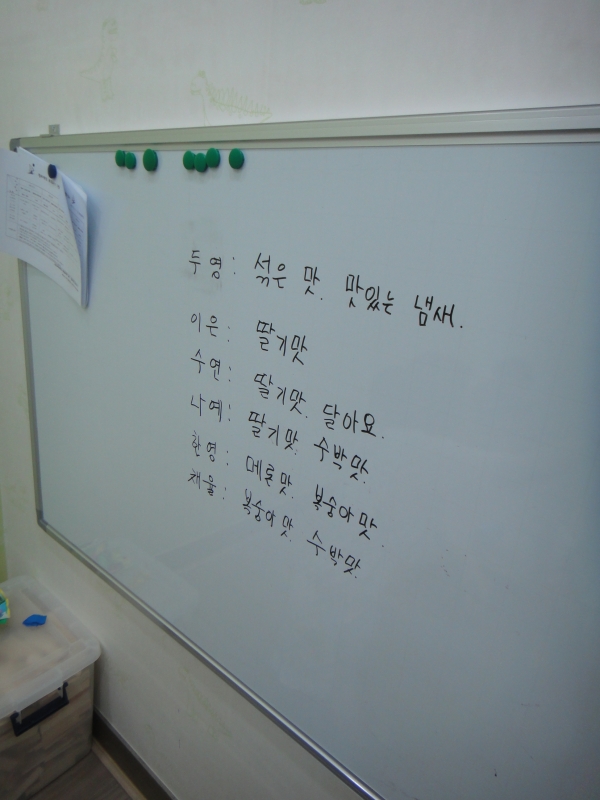 두영: 섞은 맛. 맛있는 냄새.
이은: 딸기맛
수연: 딸기맛. 달아요.
나예: 딸기맛. 수박맛.
환영: 메론맛. 복숭아맛.
채율: 복숭아맛. 수박맛.